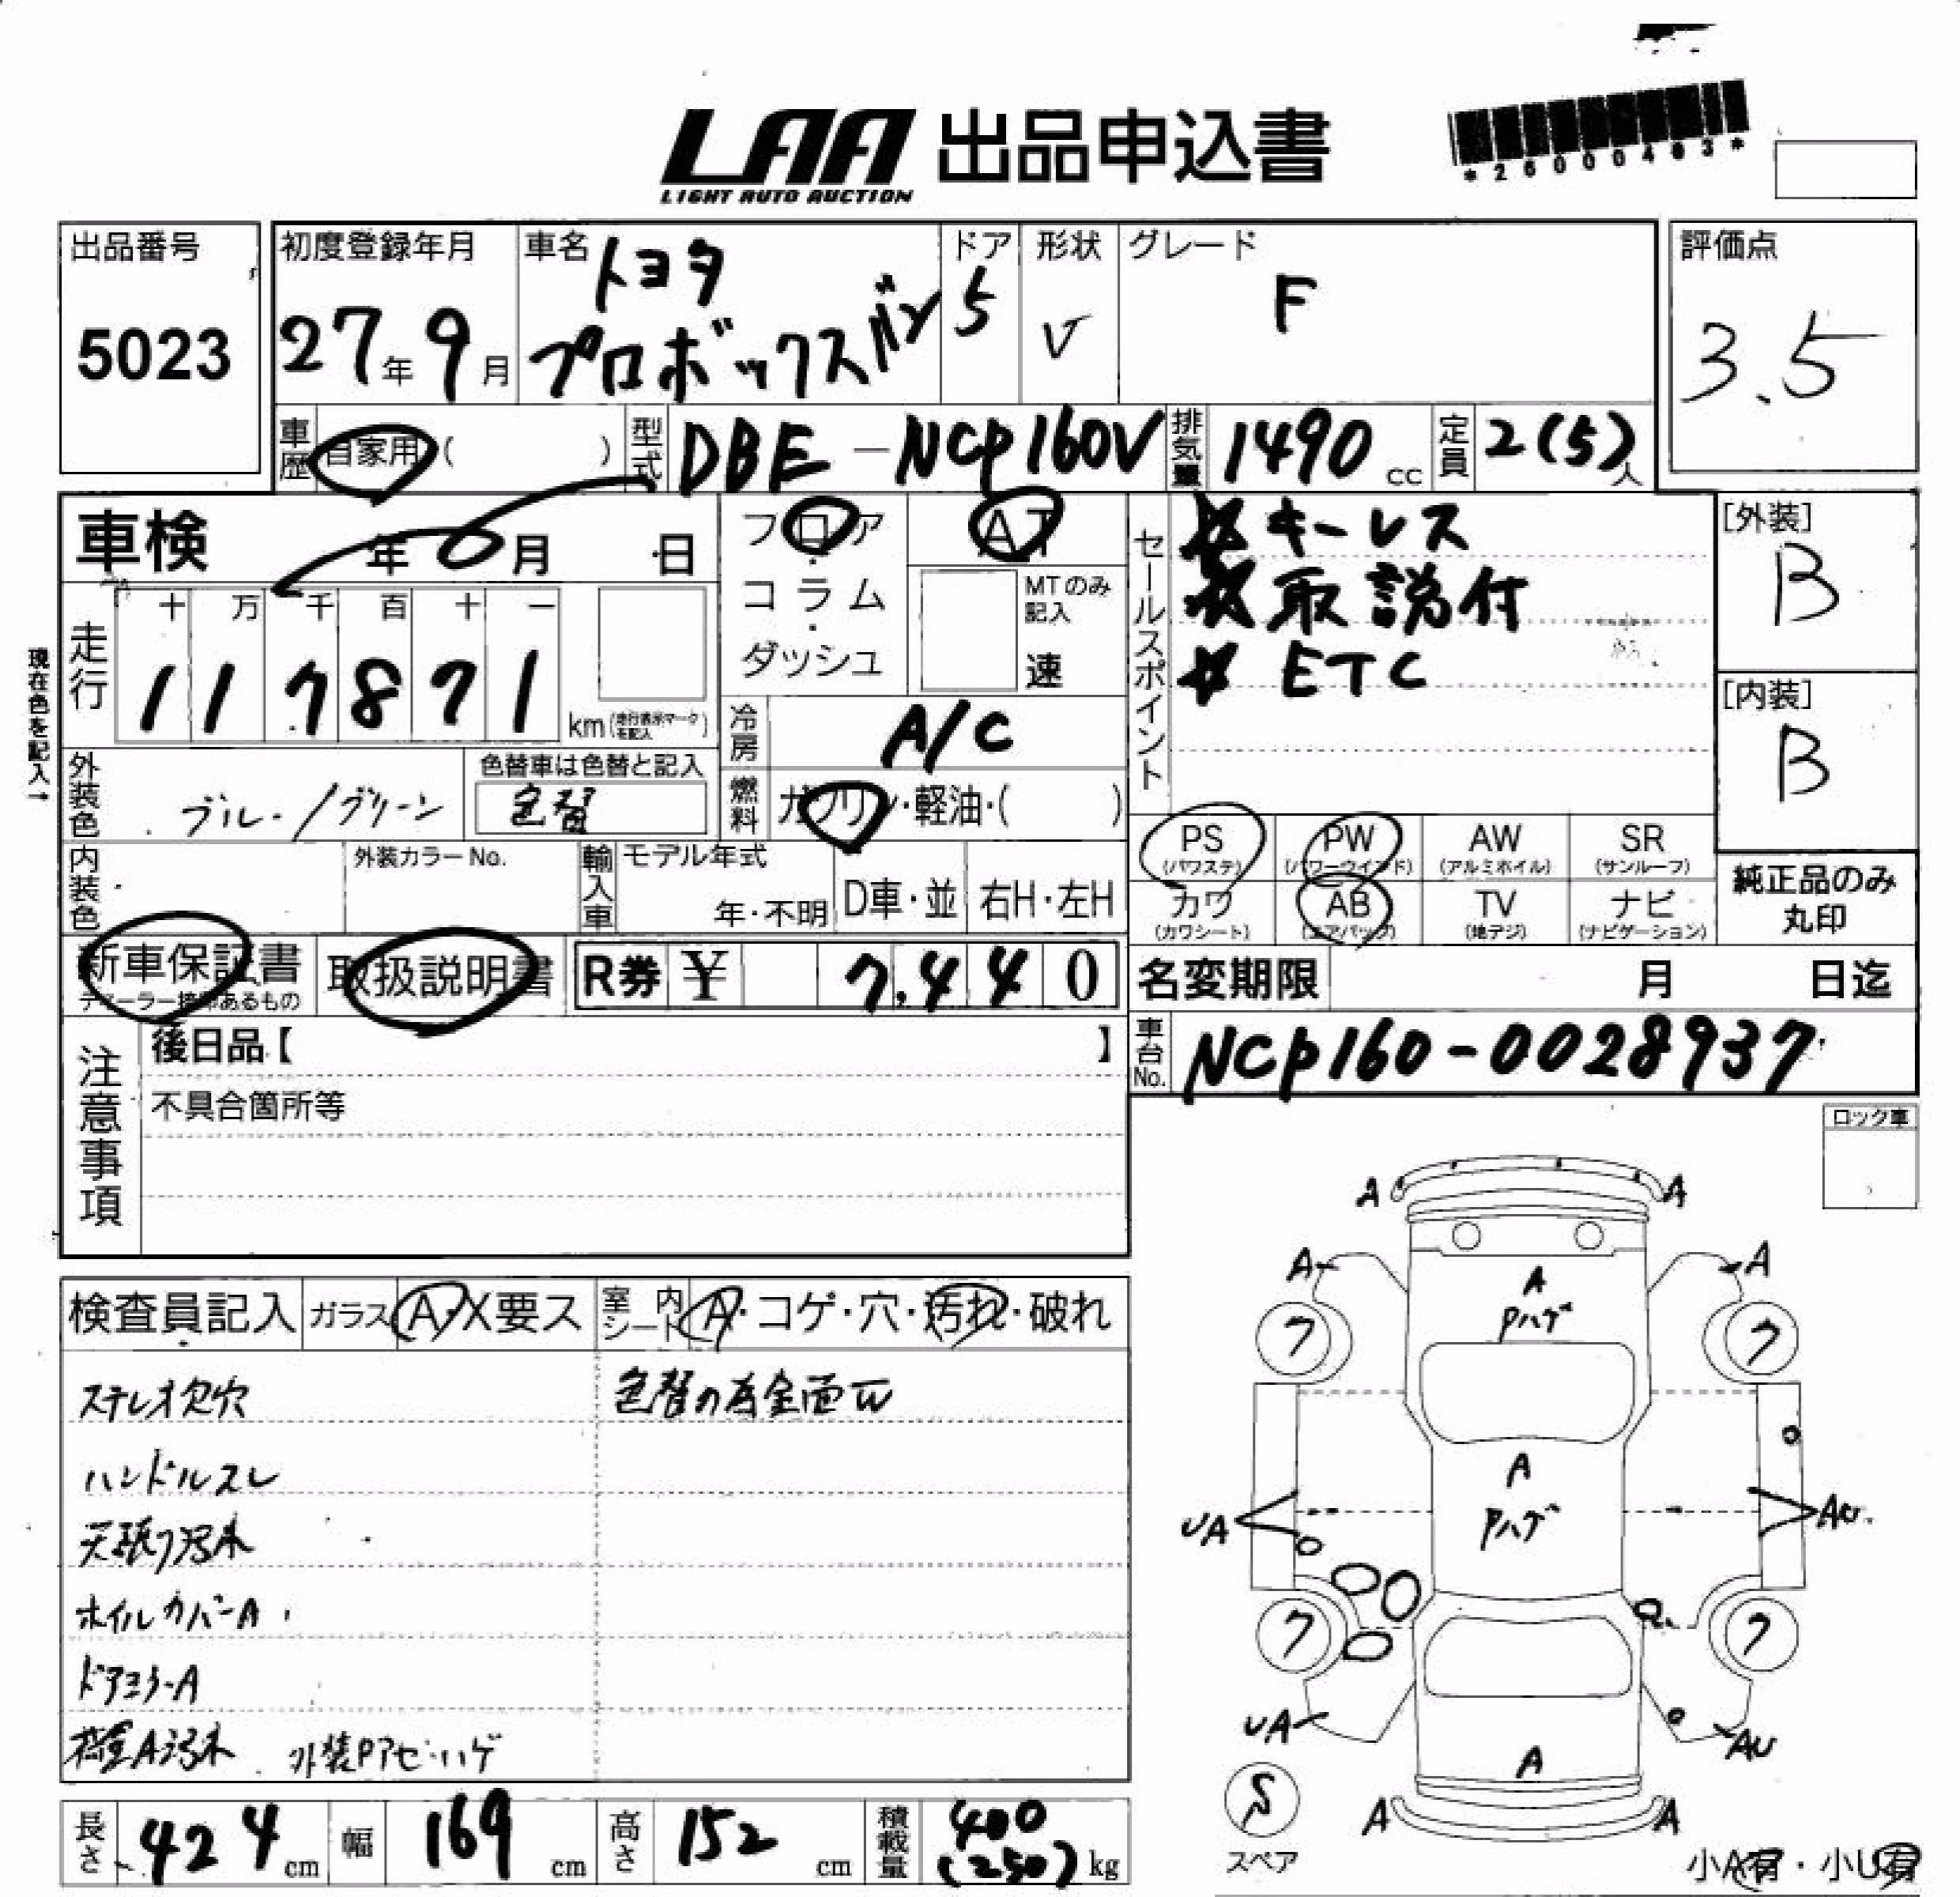 LAA 出品申込書
LIGHT AUTO AUCTION
*26000463*
出品番号
5023
初度登録年月
27年9月
車名
トヨタ
プロボックスバン
ドア
5
形状
V
グレード
F
評価点
3.5
車歴 自家用( )
型式 DBE-NCP160V
排気量 1490 cc
定員 2(5)人
車検 年 月 日
フロア・コラム・ダッシュ
AT
MTのみ記入
速
セールスポイント
☆キーレス
☆取説付
☆ETC
[外装]
B
[内装]
B
現在色を記入→
走行
十 万 千 百 十 一
1 1 7 8 7 1 km(走行表示マークを記入)
冷房 A/C
外装色 ブルー/グリーン
色替車は色替と記入
色替
燃料 ガソリン・軽油・( )
PS (パワステ)
PW (パワーウインド)
AW (アルミホイル)
SR (サンルーフ)
カワ (カワシート)
AB (エアバック)
TV (地デジ)
ナビ (ナビゲーション)
純正品のみ丸印
内装色
外装カラーNo.
輸入車
モデル年式
年・不明
D車・並
右H・左H
新車保証書
ディーラー捺印あるもの
取扱説明書
R券 ¥ 7,440
名変期限 月 日迄
車台No. NCP160-0028937
注意事項
後日品【 】
不具合箇所等
ロック車
検査員記入
ガラス A・X要ス
室内シート A・コゲ・穴・汚れ・破れ
ステレオ欠穴
色替の為全面W
ハンドルスレ
天張り汚れ
ホイルカバーA
ドアミラーA
荷室A汚れ 外装Pアセ・ハゲ
A A
A A
A
Pハゲ
フ フ
A
Pハゲ
UA AU
フ フ
UA AU
A
A A
S
スペア
小A有・小U有
長さ 424 cm
幅 169 cm
高さ 152 cm
積載量 400 (250) kg